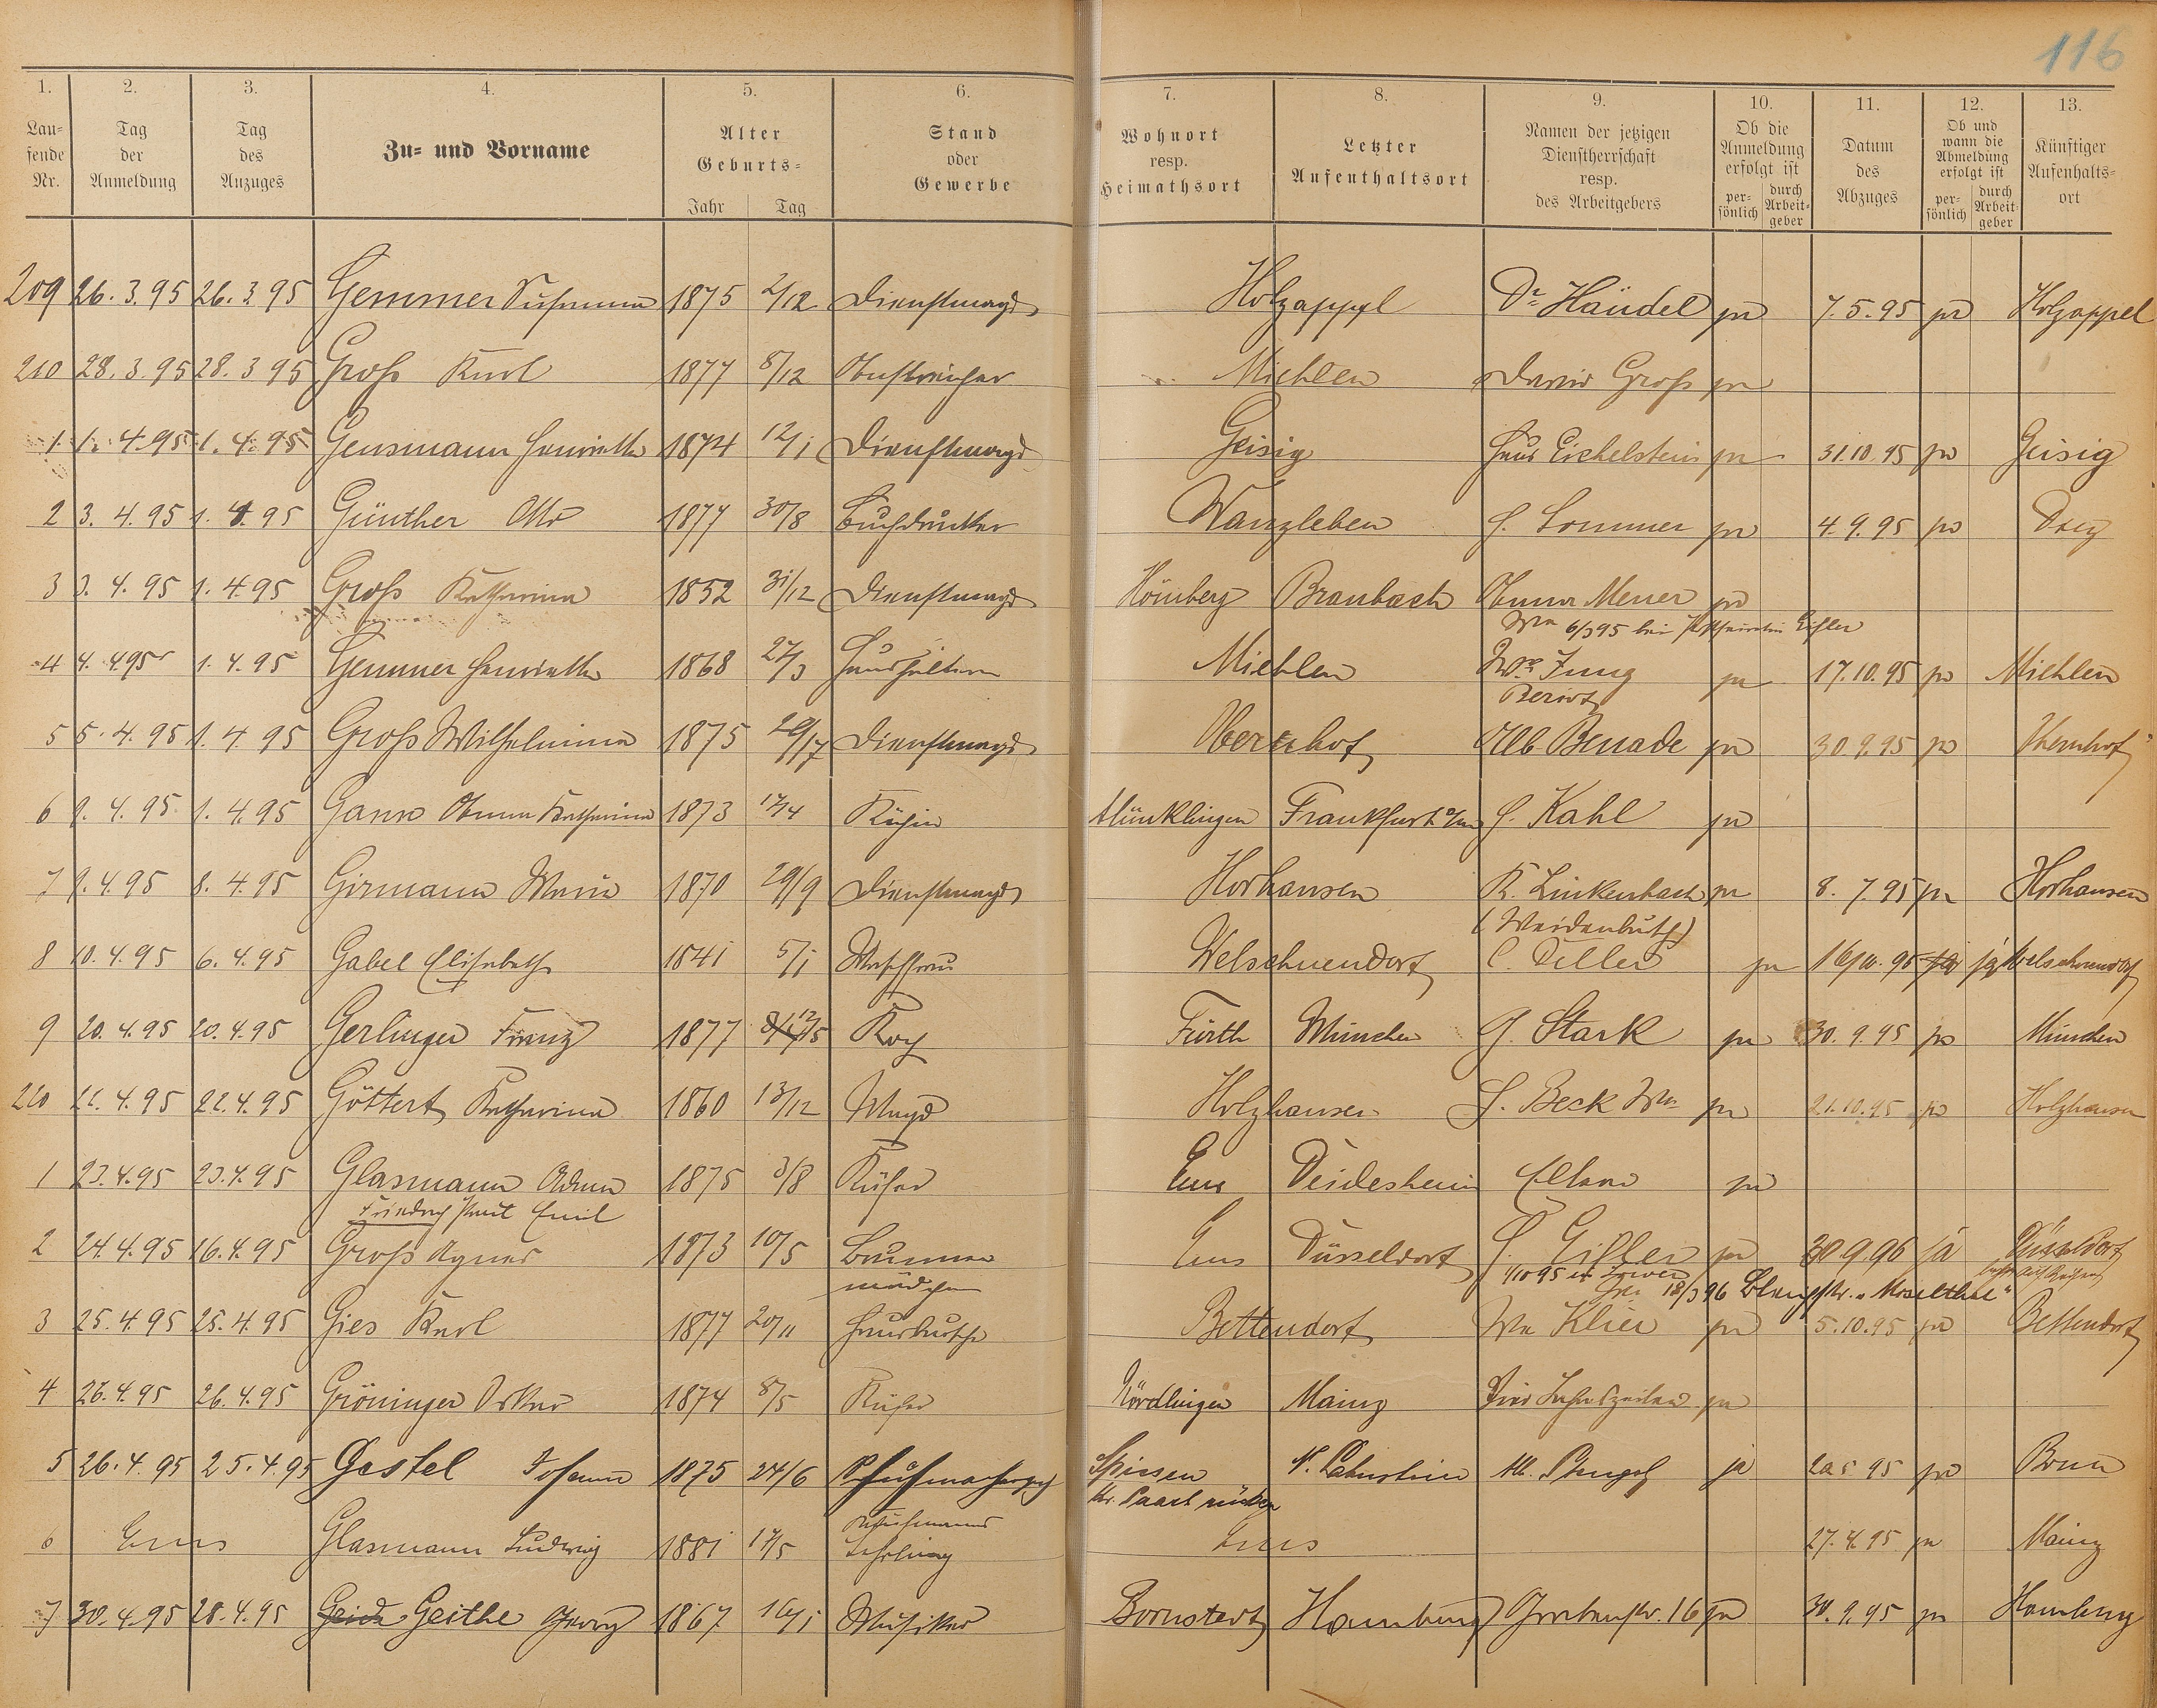 116
1. 2. 3. 4. 5. 6. 7. 8. 9. 10. 11. 12. 13.
Lau-
fende
Nr.
Tag
der
Anmeldung
Tag
des
Anzuges
Zu- und Vorname
Alter
Geburts-
Jahr Tag
Stand
oder
Gewerbe
Wohnort
resp.
Heimathsort
Letzter
Aufenthaltsort
Namen der jetzigen
Dienstherrschaft
resp.
des Arbeitgebers
Ob die
Anmeldung
erfolgt ist
per-
sönlich
durch
Arbeit-
geber
Datum
des
Abzuges
Ob und
wann die
Abmeldung
erfolgt ist
per-
sönlich
durch
Arbeit-
geber
Künftiger
Aufenhalts-
ort
209 26. 3. 95 26. 3 95 Gemmer Susanna 1875 2/12 Dienstmagd Holzappel Dr Händel ja 7. 5. 95 ja Holzappel
210 28. 3. 95 28. 3 95 Groß Karl 1877 8/12 Anstreicher Miehlen David Groß ja
1 1. 4. 95 1. 4. 95 Gensmann Henriette 1874 12/1 Dienstmagd Geisig Haus Eichelstein ja 31.10.95 ja Geisig
2 3. 4. 95 1. 4. 95 Günther Otto 1877 30/8 Buchdrucker Wanzleben H. Sommer ja 4. 9. 95 ja Diez
3 3. 4. 95 1. 4. 95 Groß Katharina 1852 31/12 Dienstmagd Hömberg Braubach ja
Wwe 6/3 95 bei
4 4. 4 95 1. 4. 95 Gemmer Henriette 1868 27/3 Haushälterin Miehlen Wwe Jung ja 17.10.95 ja Miehlen
5 5. 4. 95 1. 4. 95 Groß Wilhelmina 1875 Dienstmagd Obernhof Alb Benade ja 30.9.95 ja Obernhof
6 9. 4. 95 1. 4. 95 Anna Katharina 1873 17/4 Köchin Münklingen Frankfurt a/m H. Kahl ja
7 9. 4. 95 8. 4. 95 Girmann Maria 1870 29/9 Dienstmagd Horhausen K. Linkenbach ja 8. 7. 95 ja Horhausen
(Weidenbusch)
8 10. 4. 95 6. 4. 95 Gabel Elisabeth 1841 5/1 Waschfrau Welschneudorf C. Diller ja 16/10. 95 ja Welschneudorf
9 20. 4. 95 20. 4. 95 Gerlinger Franz 1877 Koch Fürth München G. Stark ja 30. 9. 95 ja München
220 22. 4. 95 22. 4. 95 Göttert Katharina 1860 13/12 Magd Holzhausen H. Beck Wwe ja 21.10.95 ja Holzhausen
1 23. 4. 95 23. 4. 95 Glasmann Adam 1875 3/8 Küfer Ems Deidesheim ja
Friedrich Paul Emil
2 24. 4. 95 16. 4. 95 Groß Agnes 1873 10/5 Brunnen Ems Düsseldorf H. Gißler ja 30. 9. 96 ja Düsseldorf
mädchen 1/10 95 18/3 96 "Moselthal"
3 25. 4. 95 25. 4. 95 Gies Karl 1877 20/11 Hausbursche Bettendorf Wwe Klier ja 5.10.95 ja Bettendorf
4 26. 4. 95 26. 4. 95 Gröninger Oskar 1874 8/5 Küfer Nördlingen Mainz ja
5 26. 4. 95 25. 4. 95 Gastel Johann 1875 24/6 Schuhmacherges Spiesen N. Lahnstein M. Stengel ja ja Bonn
Kr. Saarbrücken
Kaufmanns
6 Ems Glasmann Ludwig 1881 17/5 Lehrling Ems 27. 4. 95 ja Mainz
7 30. 4. 95 28. 4. 95 Geithe Georg 1867 16/1 Musiker Bornstedt Hamburg Grabenstr. 16 ja 30. 9. 95 ja Hamburg